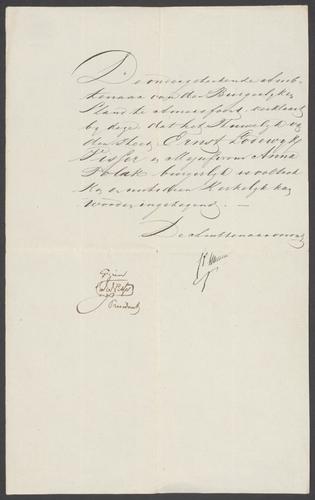 De ondergeteekende Amb-
tenaar van den Burgerlyken
Stand te Amersfoort, verklaart
by deze dat het Huwelyk van
den Heer Ernst Lodewyk
Visser en Mejufvrouw Anna
Polak burgerlyk is voltrok-
ken en mitsdien Kerkelyk kan
worden ingezegend. —
De Ambtenaar voorn:
Gezien
President